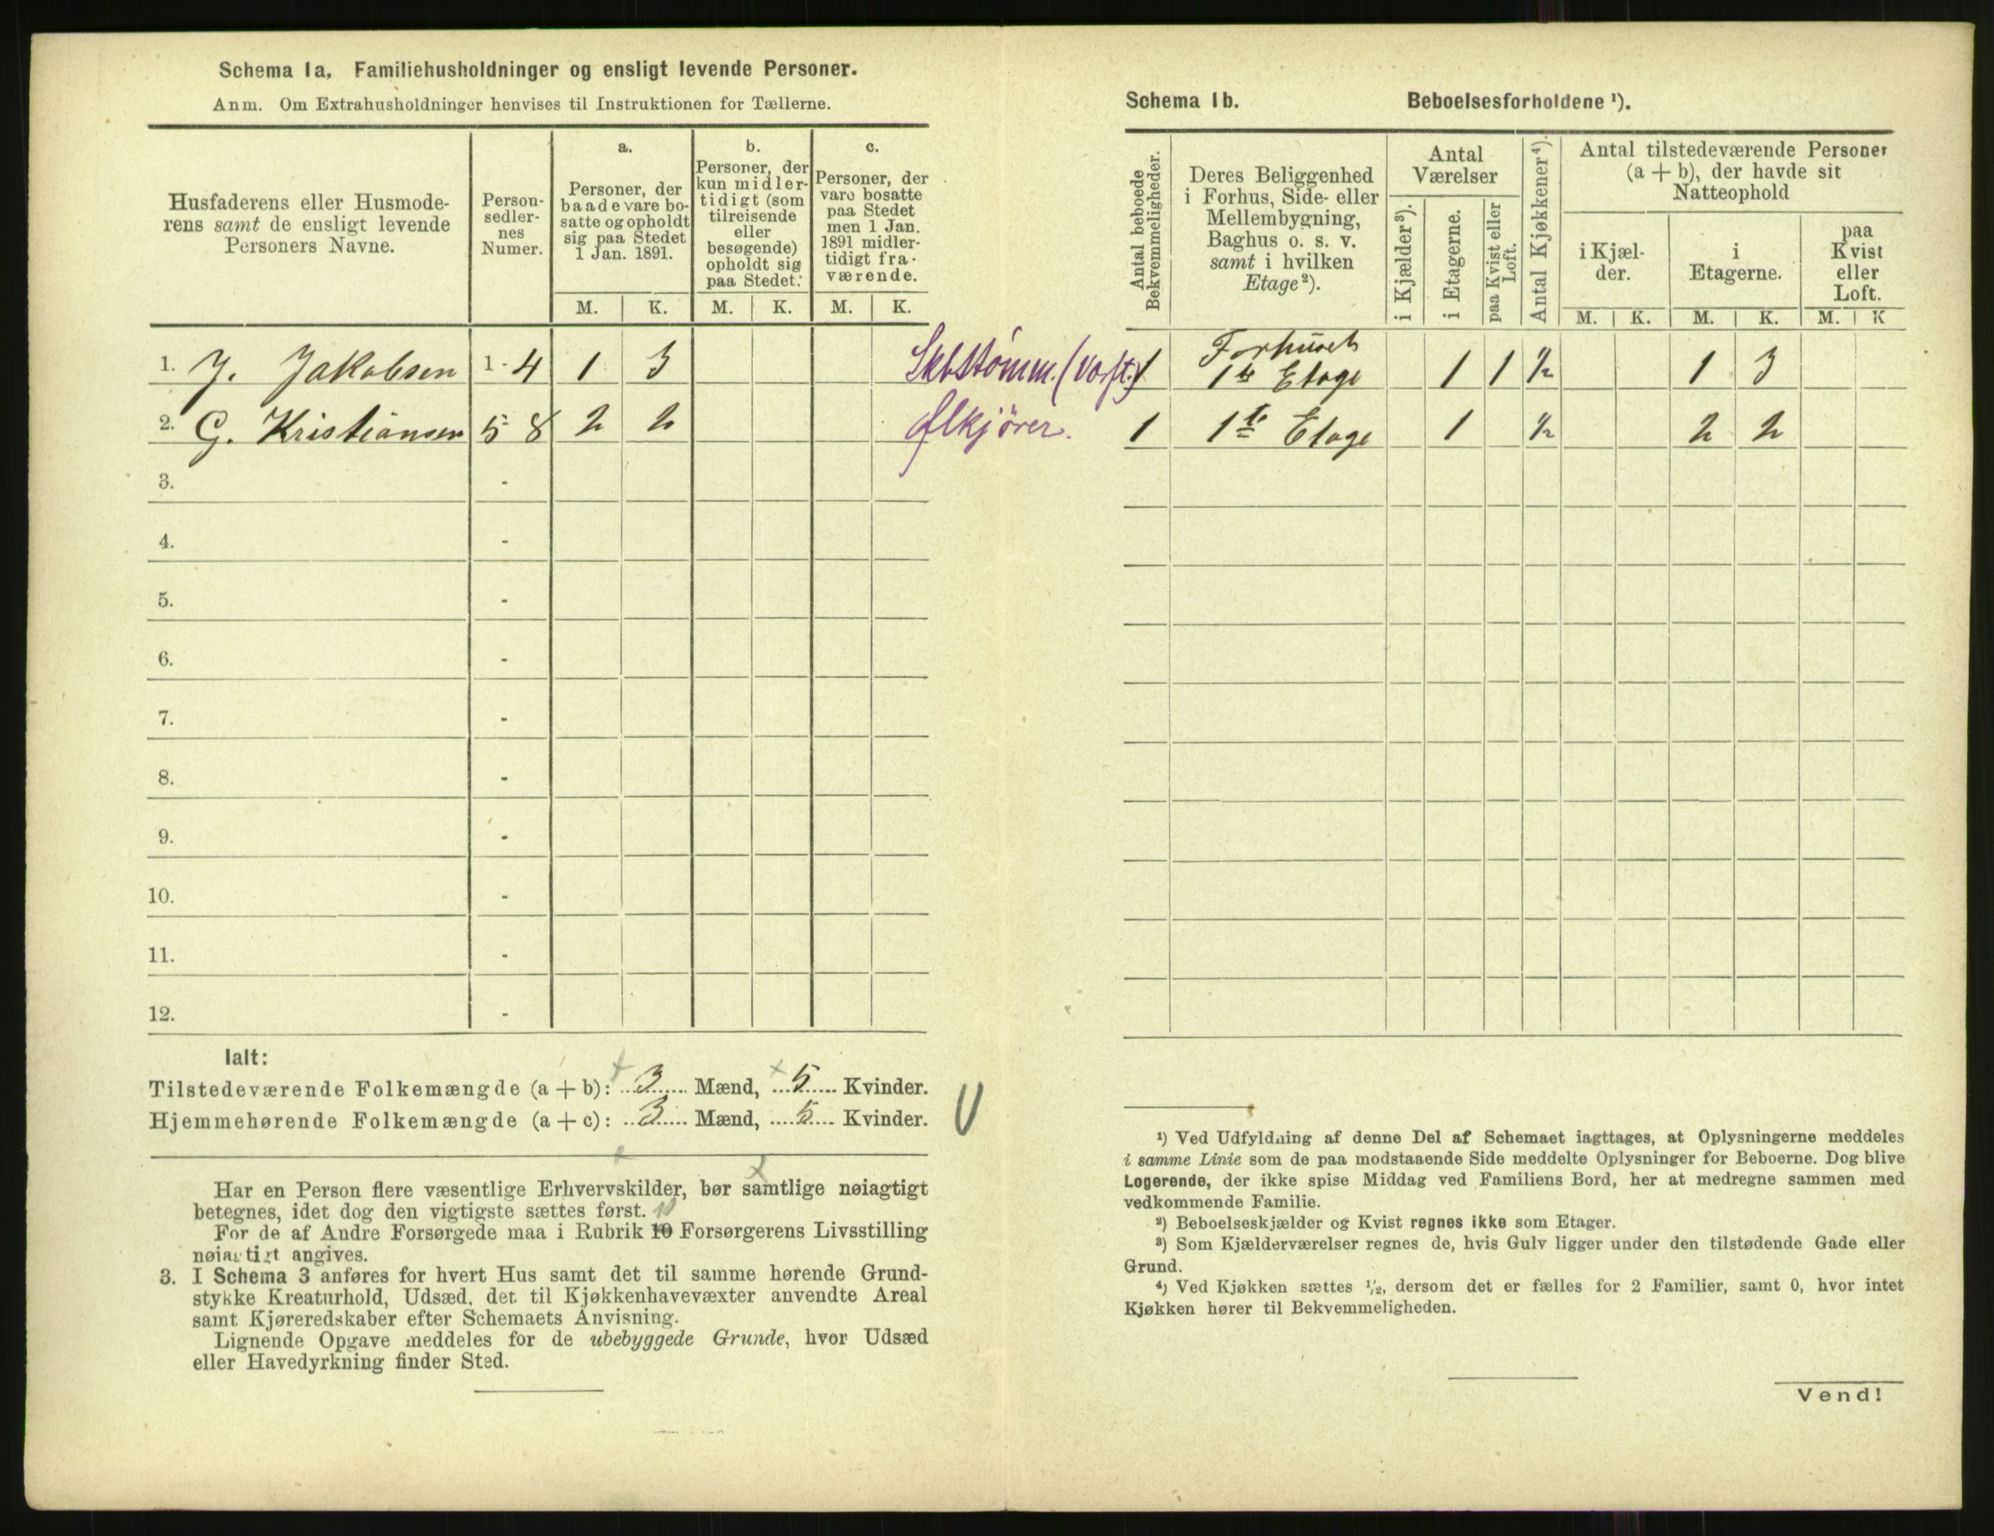 Schema 1a. Familiehusholdninger og ensligt levende Personer.
Anm. Om Extrahusholdninger henvises til Instruktionen for Tællerne.
Husfaderens eller Husmode-
rens samt de ensligt levende
Personers Navne.
Person-
sedler-
nes
Numer.
a.
Personer, der
baade vare bo-
satte og opholdt
sig paa Stedet
1 Jan. 1891.
b.
Personer, der
kun midler-
tidigt (som
tilreisende
eller
besøgende)
opholdt sig
paa Stedet.
c.
Personer, der
vare bosatte
paa Stedet
men 1 Jan.
1891 midler-
tidigt fra-
værende.
M. K. M. K. M. K.
1. J. Jakobsen 1-4 1 3 Skbstømm. (Vaft.)
2. G. Kristiansen 5-8 2 2 Ølkjører.
3. -
4. -
5. -
6. -
7. -
8. -
9. -
10. -
11. -
12. -
Ialt:
Tilstedeværende Folkemængde (a + b): 3 Mænd, 5 Kvinder.
Hjemmehørende Folkemængde (a + c): 3 Mænd, 5 Kvinder.
Har en Person flere væsentlige Erhvervskilder, bør samtlige nøiagtigt
betegnes, idet dog den vigtigste sættes først.
For de af Andre Forsørgede maa i Rubrik 10 Forsørgerens Livsstilling
nøiagtigt angives.
3. I Schema 3 anføres for hvert Hus samt det til samme hørende Grund-
stykke Kreaturhold, Udsæd, det til Kjøkkenhavevæxter anvendte Areal
samt Kjøreredskaber efter Schemaets Anvisning.
Lignende Opgave meddeles for de ubebyggede Grunde, hvor Udsæd
eller Havedyrkning finder Sted.
Schema 1b. Beboelsesforholdene ¹).
Antal beboede
Bekvemmeligheder.
Deres Beliggenhed
i Forhus, Side- eller
Mellembygning,
Baghus o. s. v.
samt i hvilken
Etage²).
Antal
Værelser
i Kjælder³).
i Etagerne.
paa Kvist eller
Loft.
Antal Kjøkkener⁴).
Antal tilstedeværende Personer
(a + b), der havde sit
Natteophold
i Kjæl-
der.
i
Etagerne.
paa
Kvist
eller
Loft.
M. K. M. K. M. K
Forhuset
1 1te Etage 1 1 ½ 1 3
1 1te Etage 1 ½ 2 2
¹) Ved Udfyldning af denne Del af Schemaet iagttages, at Oplysningerne meddeles
i samme Linie som de paa modstaaende Side meddelte Oplysninger for Beboerne. Dog blive
Logerende, der ikke spise Middag ved Familiens Bord, her at medregne sammen med
vedkommende Familie.
²) Beboelseskjælder og Kvist regnes ikke som Etager.
³) Som Kjælderværelser regnes de, hvis Gulv ligger under den tilstødende Gade eller
Grund.
⁴) Ved Kjøkken sættes ½, dersom det er fælles for 2 Familier, samt 0, hvor intet
Kjøkken hører til Bekvemmeligheden.
Vend!